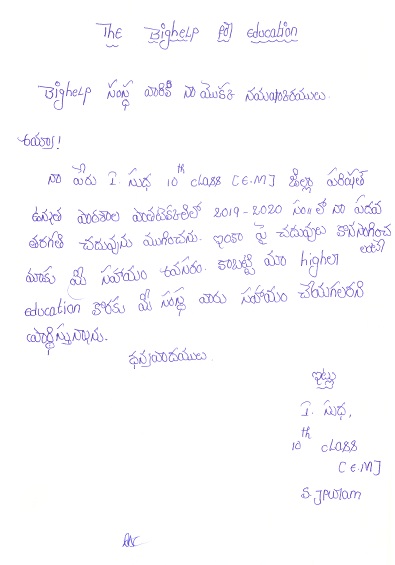 The Bighelp for education
Bighelp సంస్థ వారికి నా యొక్క నమస్కారములు.
అయ్యా!
నా పేరు I. సుధ 10th class [E.M] జిల్లా పరిషత్
ఉన్నత పాఠశాల 2019-2020 సం॥ లో నా పదవ
తరగతి చదువును ముగించాను. ఇంకా పై చదువులు కొనసాగించ
మాకు మీ సహాయం అవసరం. కాబట్టి మా higher
education కొరకు మీ సంస్థ వారు సహాయం చేయగలరని
ప్రార్థిస్తున్నాను.
ధన్యవాదములు.
ఇట్లు
I. సుధ,
10th class
[E.M]
S.JPuram